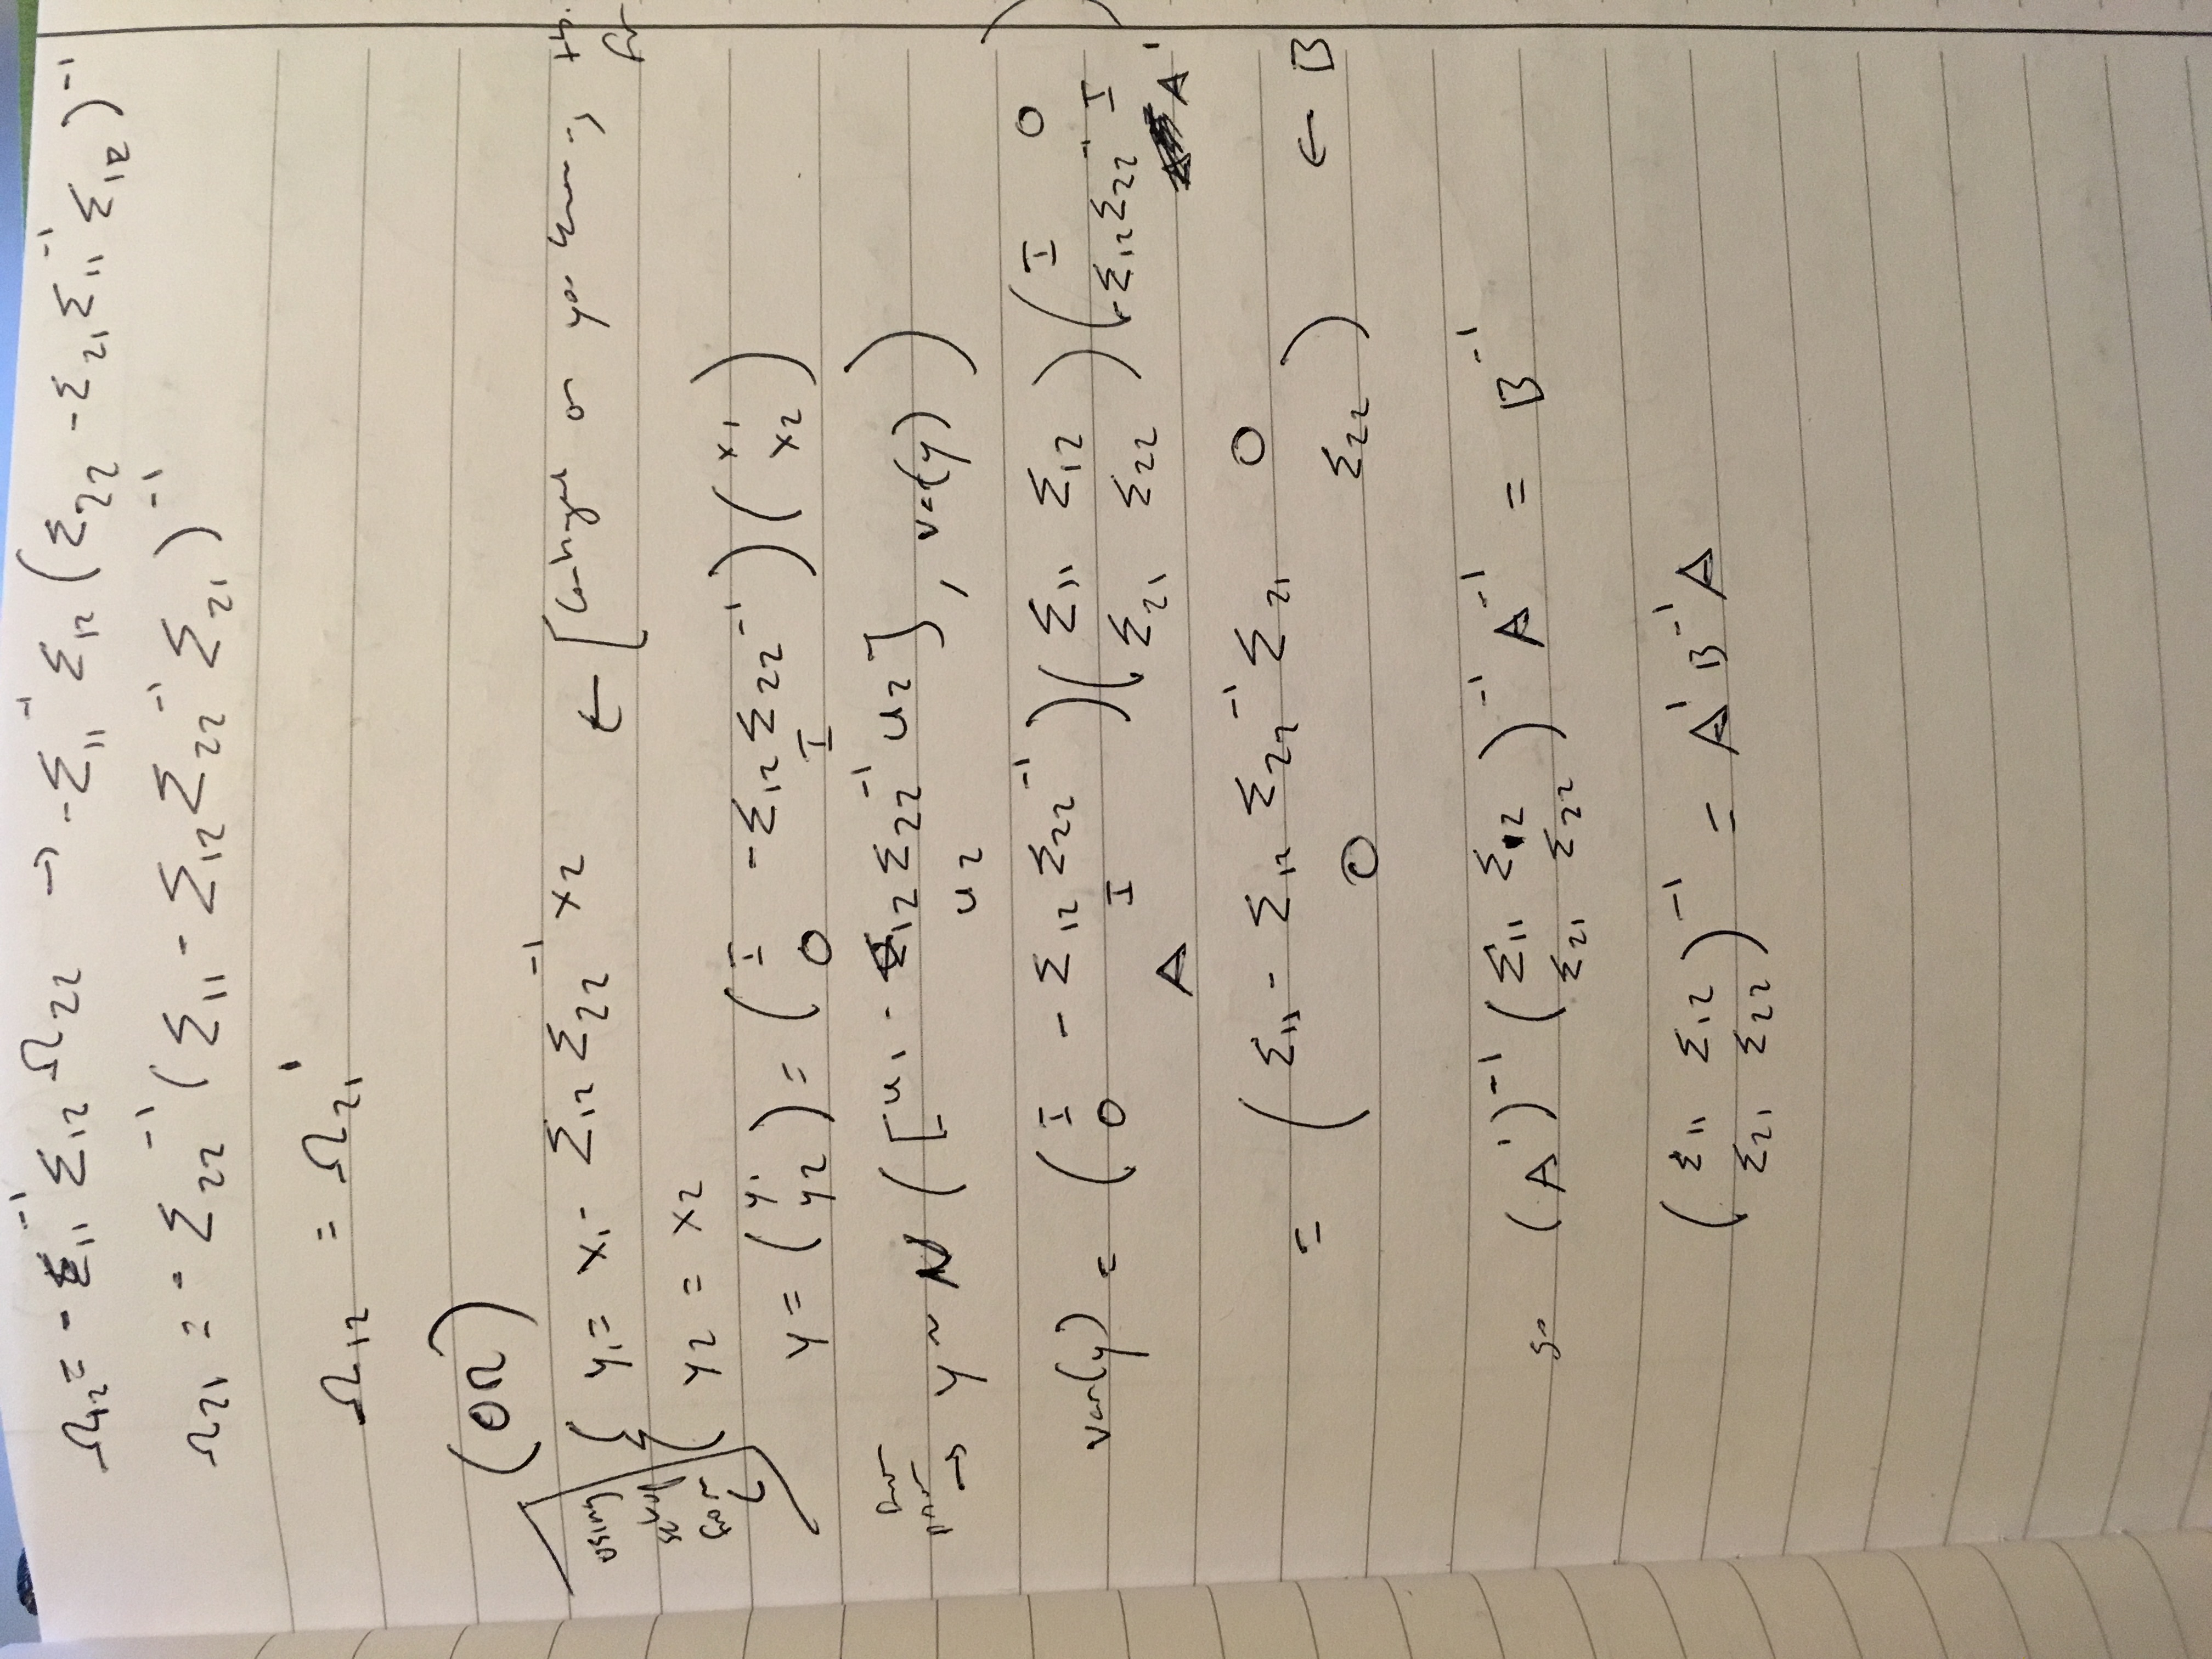 Ω₁₂ = - Σ₁₁⁻¹ Σ₁₂ Ω₂₂ → -Σ₁₁⁻¹ Σ₁₂ (Σ₂₂ - Σ₂₁ Σ₁₁⁻¹ Σ₁₂)⁻¹
Ω₂₁ = - Σ₂₂⁻¹ (Σ₁₁ - Σ₁₂ Σ₂₂⁻¹ Σ₂₁)⁻¹
Ω₁₂ = Ω₂₁'
(OR)
using setup from
y₁ = x₁ - Σ₁₂ Σ₂₂⁻¹ x₂ ← [ on you
y₂ = x₂
y = (y₁ y₂) = (I -Σ₁₂ Σ₂₂⁻¹ 0 I) (x₁ x₂)
→ y ~ N ([u₁ - Σ₁₂ Σ₂₂⁻¹ u₂] u₂ , var(y))
var(y) = (I - Σ₁₂ Σ₂₂⁻¹ 0 I) (Σ₁₁ Σ₁₂ Σ₂₁ Σ₂₂) (I 0 -Σ₁₂ Σ₂₂⁻¹ I)
A A'
= (Σ₁₁ - Σ₁₂ Σ₂₂⁻¹ Σ₂₁ 0 0 Σ₂₂) ← B
so (A')⁻¹ (Σ₁₁ Σ₁₂ Σ₂₁ Σ₂₂)⁻¹ A⁻¹ = B⁻¹
(Σ₁₁ Σ₁₂ Σ₂₁ Σ₂₂)⁻¹ = A' B⁻¹ A